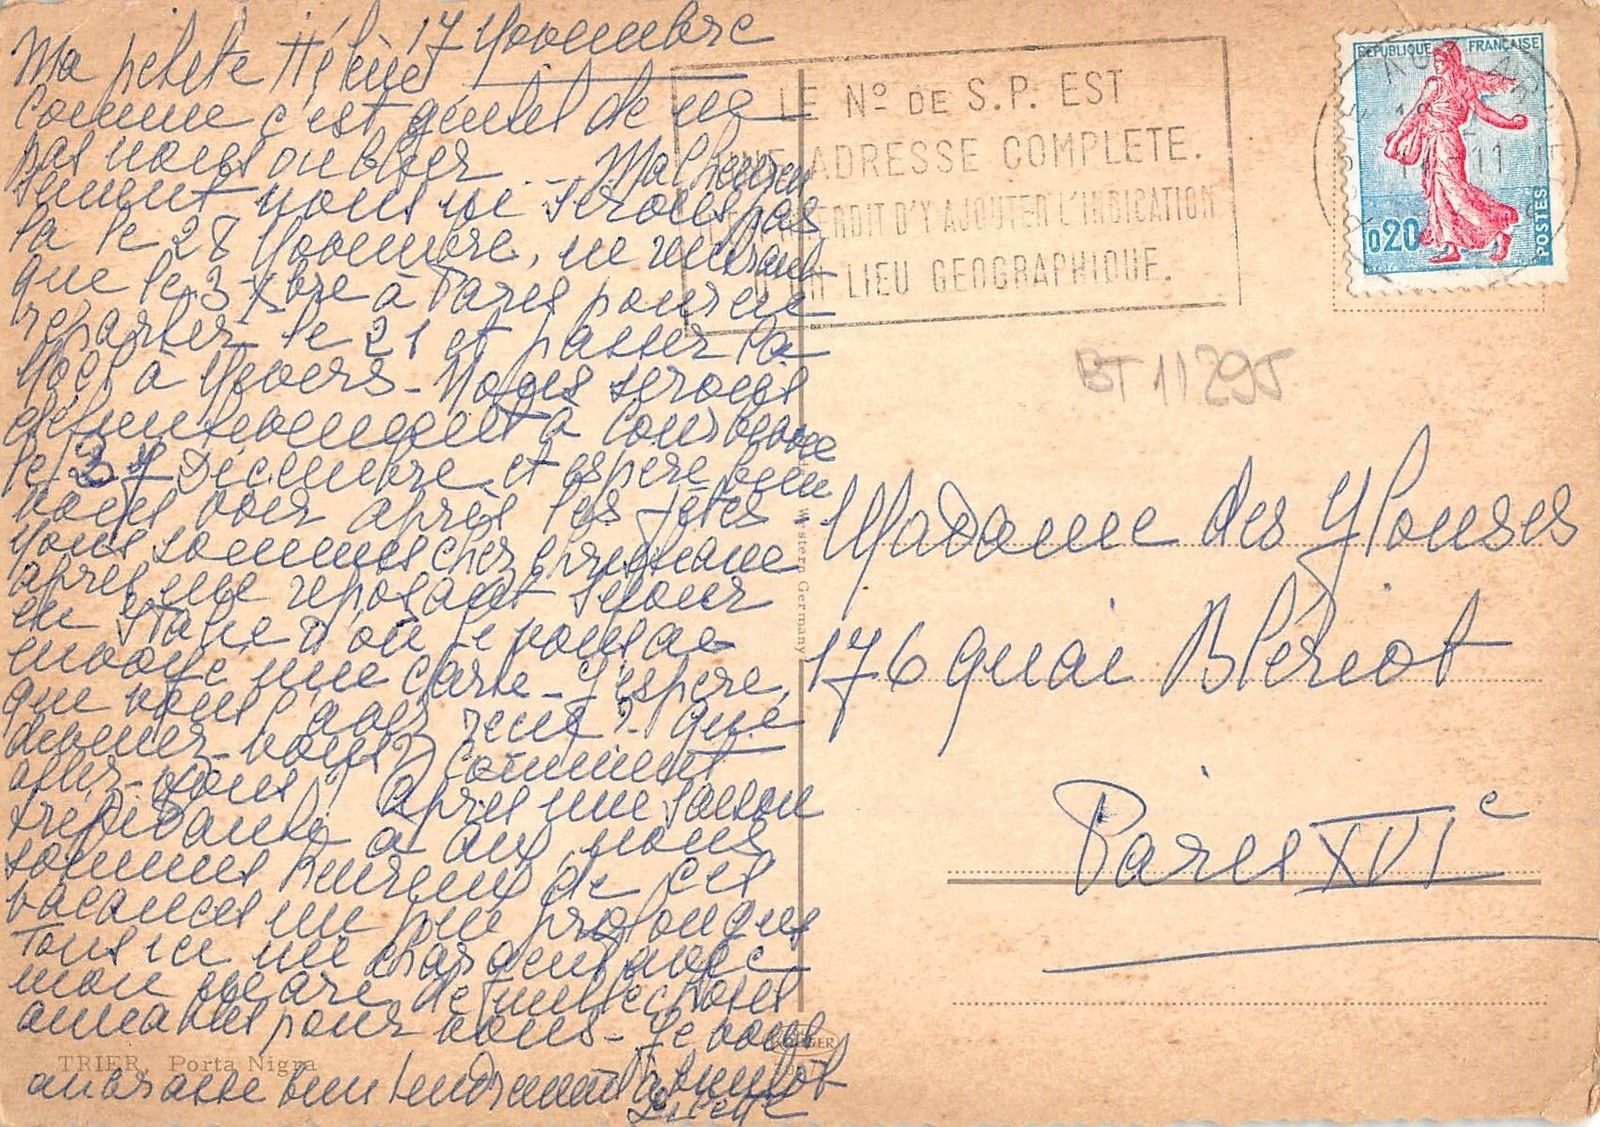 17 Novembre
Ma petite Hélène
Comme c'est gentil de ne
pas nous oublier - Malheureu
sement nous ne serons pas
là le 28 Novembre, ne rentrant
que le 3 Xbre à Paris pour en
repartir le 21 et passer la
Noël à Nevers - Nous serons
définitivement à Courbevoie
le 27 Décembre et espère bien
vous voir après les fêtes -
Nous sommes chez
après une reposant séjour
en Italie d'où je vous ai
envoyé une carte - J'espère
que vous l'avez reçue? que
devenez-vous? Comment
allez-vous? après une saison
trépidante à nous
sommes heureux de ces
vacances un peu prolongées
Tous ici me chargent avec
mon mari de mille choses
aimables pour vous - Je vous
embrasse bien tendrement à bientôt
TRIER, Porta Nigra
Western Germany
LE Nº DE S.P. EST
UNE ADRESSE COMPLETE.
INTERDIT D'Y AJOUTER L'INDICATION
D'UN LIEU GEOGRAPHIQUE.
REPUBLIQUE FRANÇAISE
0,20
POSTES
BT 11295
Madame des
176 quai Blériot
Paris XVIe